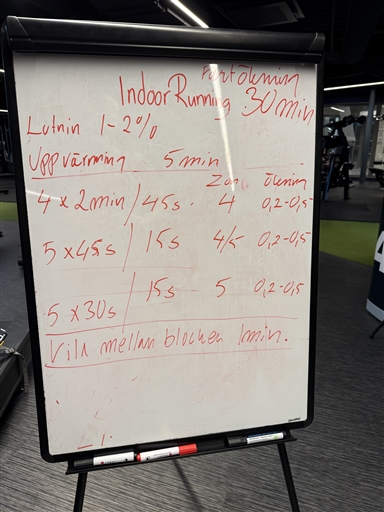 Fartökning
Indoor Running 30min
Lutnin 1-2%
Uppvärmning 5 min
Zon ökning
4 x 2min / 45s . 4 0,2-0,5
5 x 45s / 15s 4/5 0,2-0,5
5 x 30s / 15s 5 0,2-0,5
Vila mellan blocken 1min.